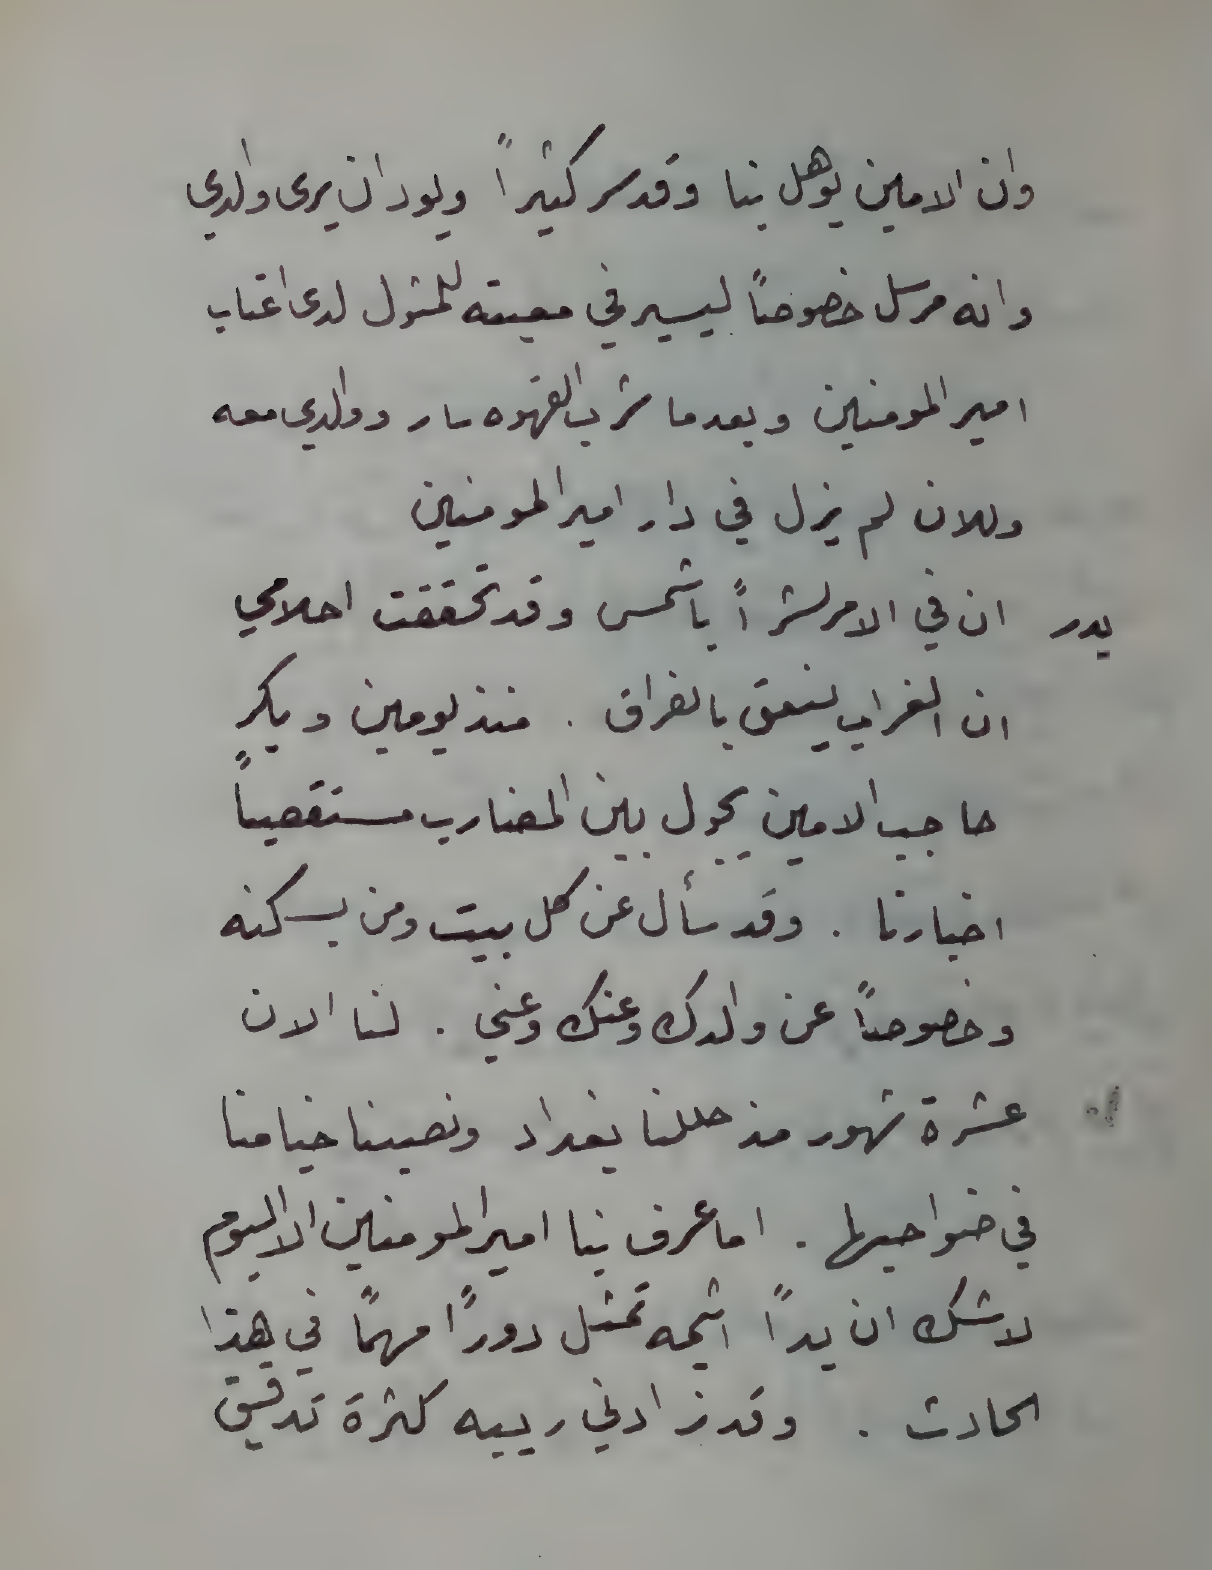 وان الامين يوهل بنا وقد سر كثيراً ويود ان يرى والدي
وانه مرسل خصوصاً ليسير في معيته للمثول لدى اعتاب
امير المومنين وبعدما شرب القهوه سار ووالدي معه
وللان لم يزل في دار امير المومنين
بدر ان في الامر لشراً يا شمس وقد تحققت احلامي
ان الغراب لينعق بالفراق . منذ يومين وبكر
حاجب الامين يجول بين المضارب مستقصياً
اخبارنا . وقد سأل عن كل بيت ومن يسكنه
وخصوصاً عن والدك وعنك وعني . لنا الان
عشرة شهور مذ حللنا بغداد ونصبنا خيامنا
في ضواحيها . اما عرف بنا امير المومنين الا اليوم
لا شك ان يداً اثيمه تمثل دورًا مهمًا في هذا
الحادث . وقد زادني ريبه كثرة تدقيق